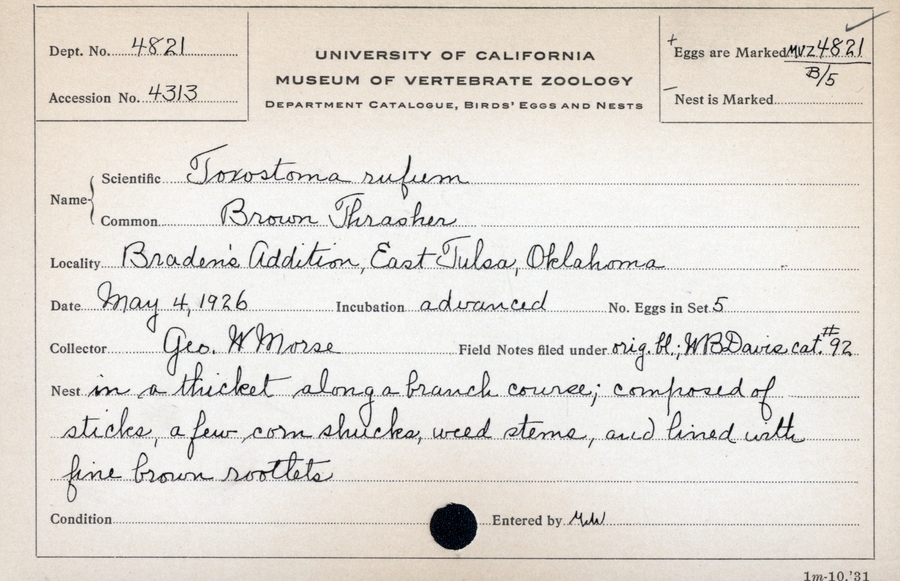 Dept. No. 4821
Accession No. 4313
UNIVERSITY OF CALIFORNIA
MUSEUM OF VERTEBRATE ZOOLOGY
DEPARTMENT CATALOGUE, BIRDS' EGGS AND NESTS
+ Eggs are Marked MVZ 4821
B/5
– Nest is Marked
Name
Scientific Toxostoma rufum
Common Brown Thrasher
Locality Braden's Addition, East Tulsa, Oklahoma
Date May 4, 1926 Incubation advanced No. Eggs in Set 5
Collector Geo. W Morse Field Notes filed under orig. bl.; WB Davis cat. #92
Nest in a thicket along a branch course; composed of
sticks, a few corn shucks, weed stems, and lined with
fine brown rootlets
Condition Entered by
1m-10,'31